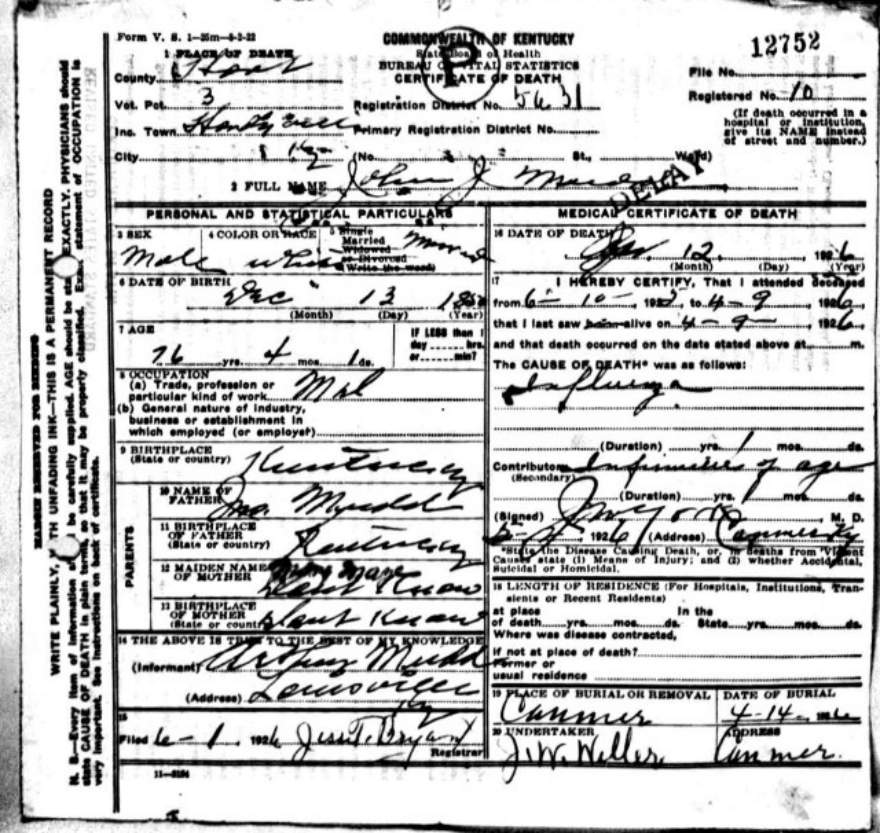 Form V. S. 1—25m—8-2-22
COMMONWEALTH OF KENTUCKY
State Board of Health
BUREAU OF VITAL STATISTICS
CERTIFICATE OF DEATH
P
12752
File No.
Registered No. 10
(If death occurred in a hospital or institution, give its NAME instead of street and number.)
1 PLACE OF DEATH
County Hart
Vot. Pct. 3
Registration District No. 5631
Inc. Town
Primary Registration District No.
City Ky (No. St., Ward)
2 FULL NAME John J
DELAY
PERSONAL AND STATISTICAL PARTICULARS
3 SEX
Male
4 COLOR OR RACE
white
5 Single
Married
Widowed
or Divorced
(Write the word)
6 DATE OF BIRTH
Dec 13
(Month) (Day) (Year)
7 AGE
76 yrs. 4 mos. 1 ds.
IF LESS than 1
day hrs.
or min?
8 OCCUPATION
(a) Trade, profession or
particular kind of work
(b) General nature of industry,
business or establishment in
which employed (or employer)
9 BIRTHPLACE
(State or country) Kentucky
PARENTS
10 NAME OF
FATHER Mudd
11 BIRTHPLACE
OF FATHER
(State or country) Kentucky
12 MAIDEN NAME
OF MOTHER Dont Know
13 BIRTHPLACE
OF MOTHER
(State or country) Dont Know
14 THE ABOVE IS TRUE TO THE BEST OF MY KNOWLEDGE
(Informant) Arthur Mudd
(Address) Louisville
Ky
15
Filed 6-1 1926 Jess T. Bryant
Registrar
11—3184
MEDICAL CERTIFICATE OF DEATH
16 DATE OF DEATH
12, 1926
(Month) (Day) (Year)
17 I HEREBY CERTIFY, That I attended deceased
from 6-10- 192 to 4-9 1926
that I last saw alive on 4-9- 1926,
and that death occurred on the date stated above at m.
The CAUSE OF DEATH* was as follows:
Influenza
(Duration) yrs. 1 mos. ds.
Contributory Infirmities of age
(Secondary)
(Duration) yrs. mos. ds.
(Signed) M. D.
1926 (Address) Canmer Ky
*State the Disease Causing Death, or, in deaths from Violent
Causes state (1) Means of Injury; and (2) whether Accidental,
Suicidal or Homicidal.
18 LENGTH OF RESIDENCE (For Hospitals, Institutions, Tran-
sients or Recent Residents)
at place In the
of death yrs. mos. ds. State yrs. mos. ds.
Where was disease contracted,
if not at place of death?
Former or
usual residence
19 PLACE OF BURIAL OR REMOVAL
Canmer
DATE OF BURIAL
4-14- 1926
20 UNDERTAKER
J. W. Weller
ADDRESS
Canmer.
MARGIN RESERVED FOR BINDING
WRITE PLAINLY, WITH UNFADING INK—THIS IS A PERMANENT RECORD
N. B.—Every item of information should be carefully supplied. AGE should be stated EXACTLY. PHYSICIANS should
state CAUSE OF DEATH in plain terms, so that it may be properly classified. Exact statement of OCCUPATION is
very important. See instructions on back of certificate.